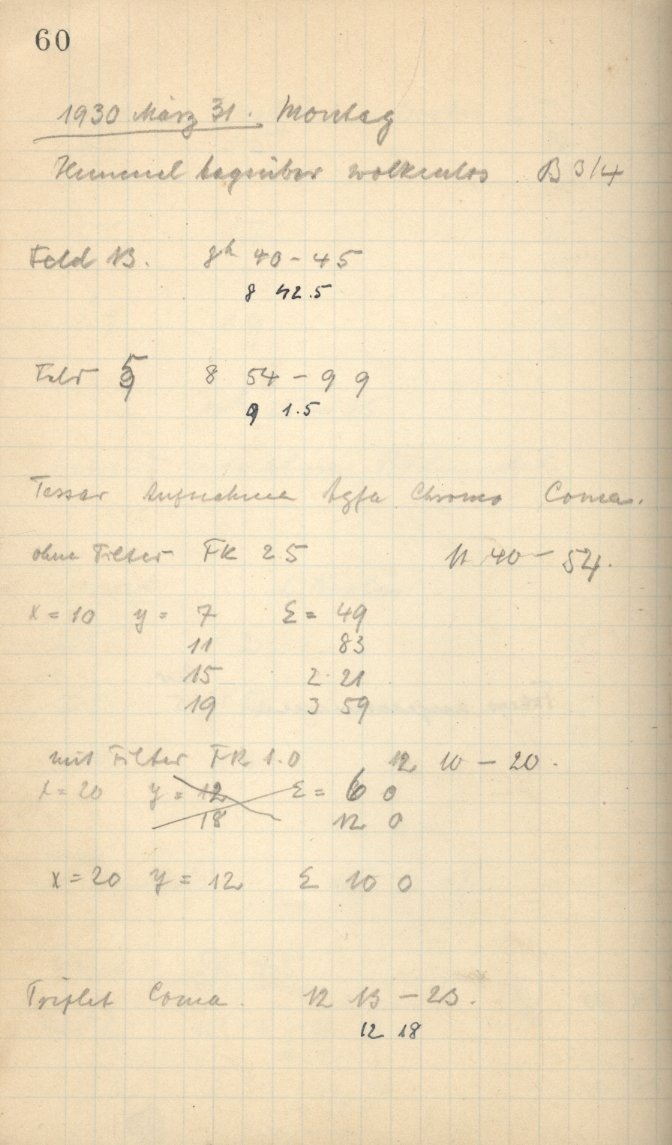 60
1930 März 31. Montag
Himmel tagsüber wolkenlos B 3/4
Feld 13. 8h 40-45
8 42.5
Feld 5 8 54-9 9
9 1.5
Tessar Aufnahme Agfa Chromo Coma.
ohne Filter FK 25 11 40-54.
x=10 y= 7 Σ= 49
11 83
15 2 21
19 3 59
mit Filter FK 1.0 12 10-20.
x=20 y= 12 Σ= 6 0
18 12 0
x=20 y=12 Σ 10 0
Triplet Coma. 12 13-23.
12 18